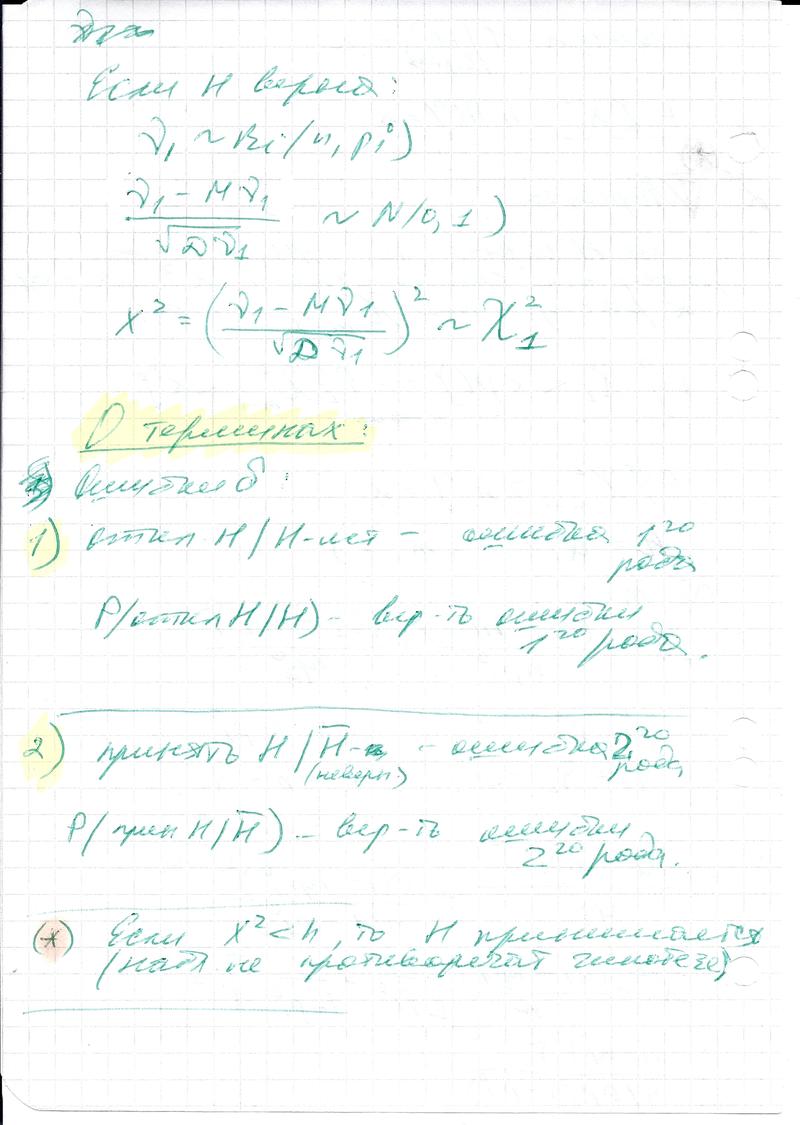 Если H верна:
ν₁ ~ Bi(n, p₁⁰)
(ν₁ - Mν₁) / √Dν₁ ~ N(0, 1)
X² = ((ν₁ - Mν₁) / √Dν₁)² ~ χ₁²
О терминах:
Ошибки:
1) откл H / H - ошибка 1го
рода
P(откл H / H) - вер-ть ошибки
1го рода.
2) принять H / H̅ - ошибка 2го
(неверн.) рода
P(прин H / H̅) - вер-ть ошибки
2го рода.
(*) Если X² < h, то H принимается
(набл не противоречат гипотезе)